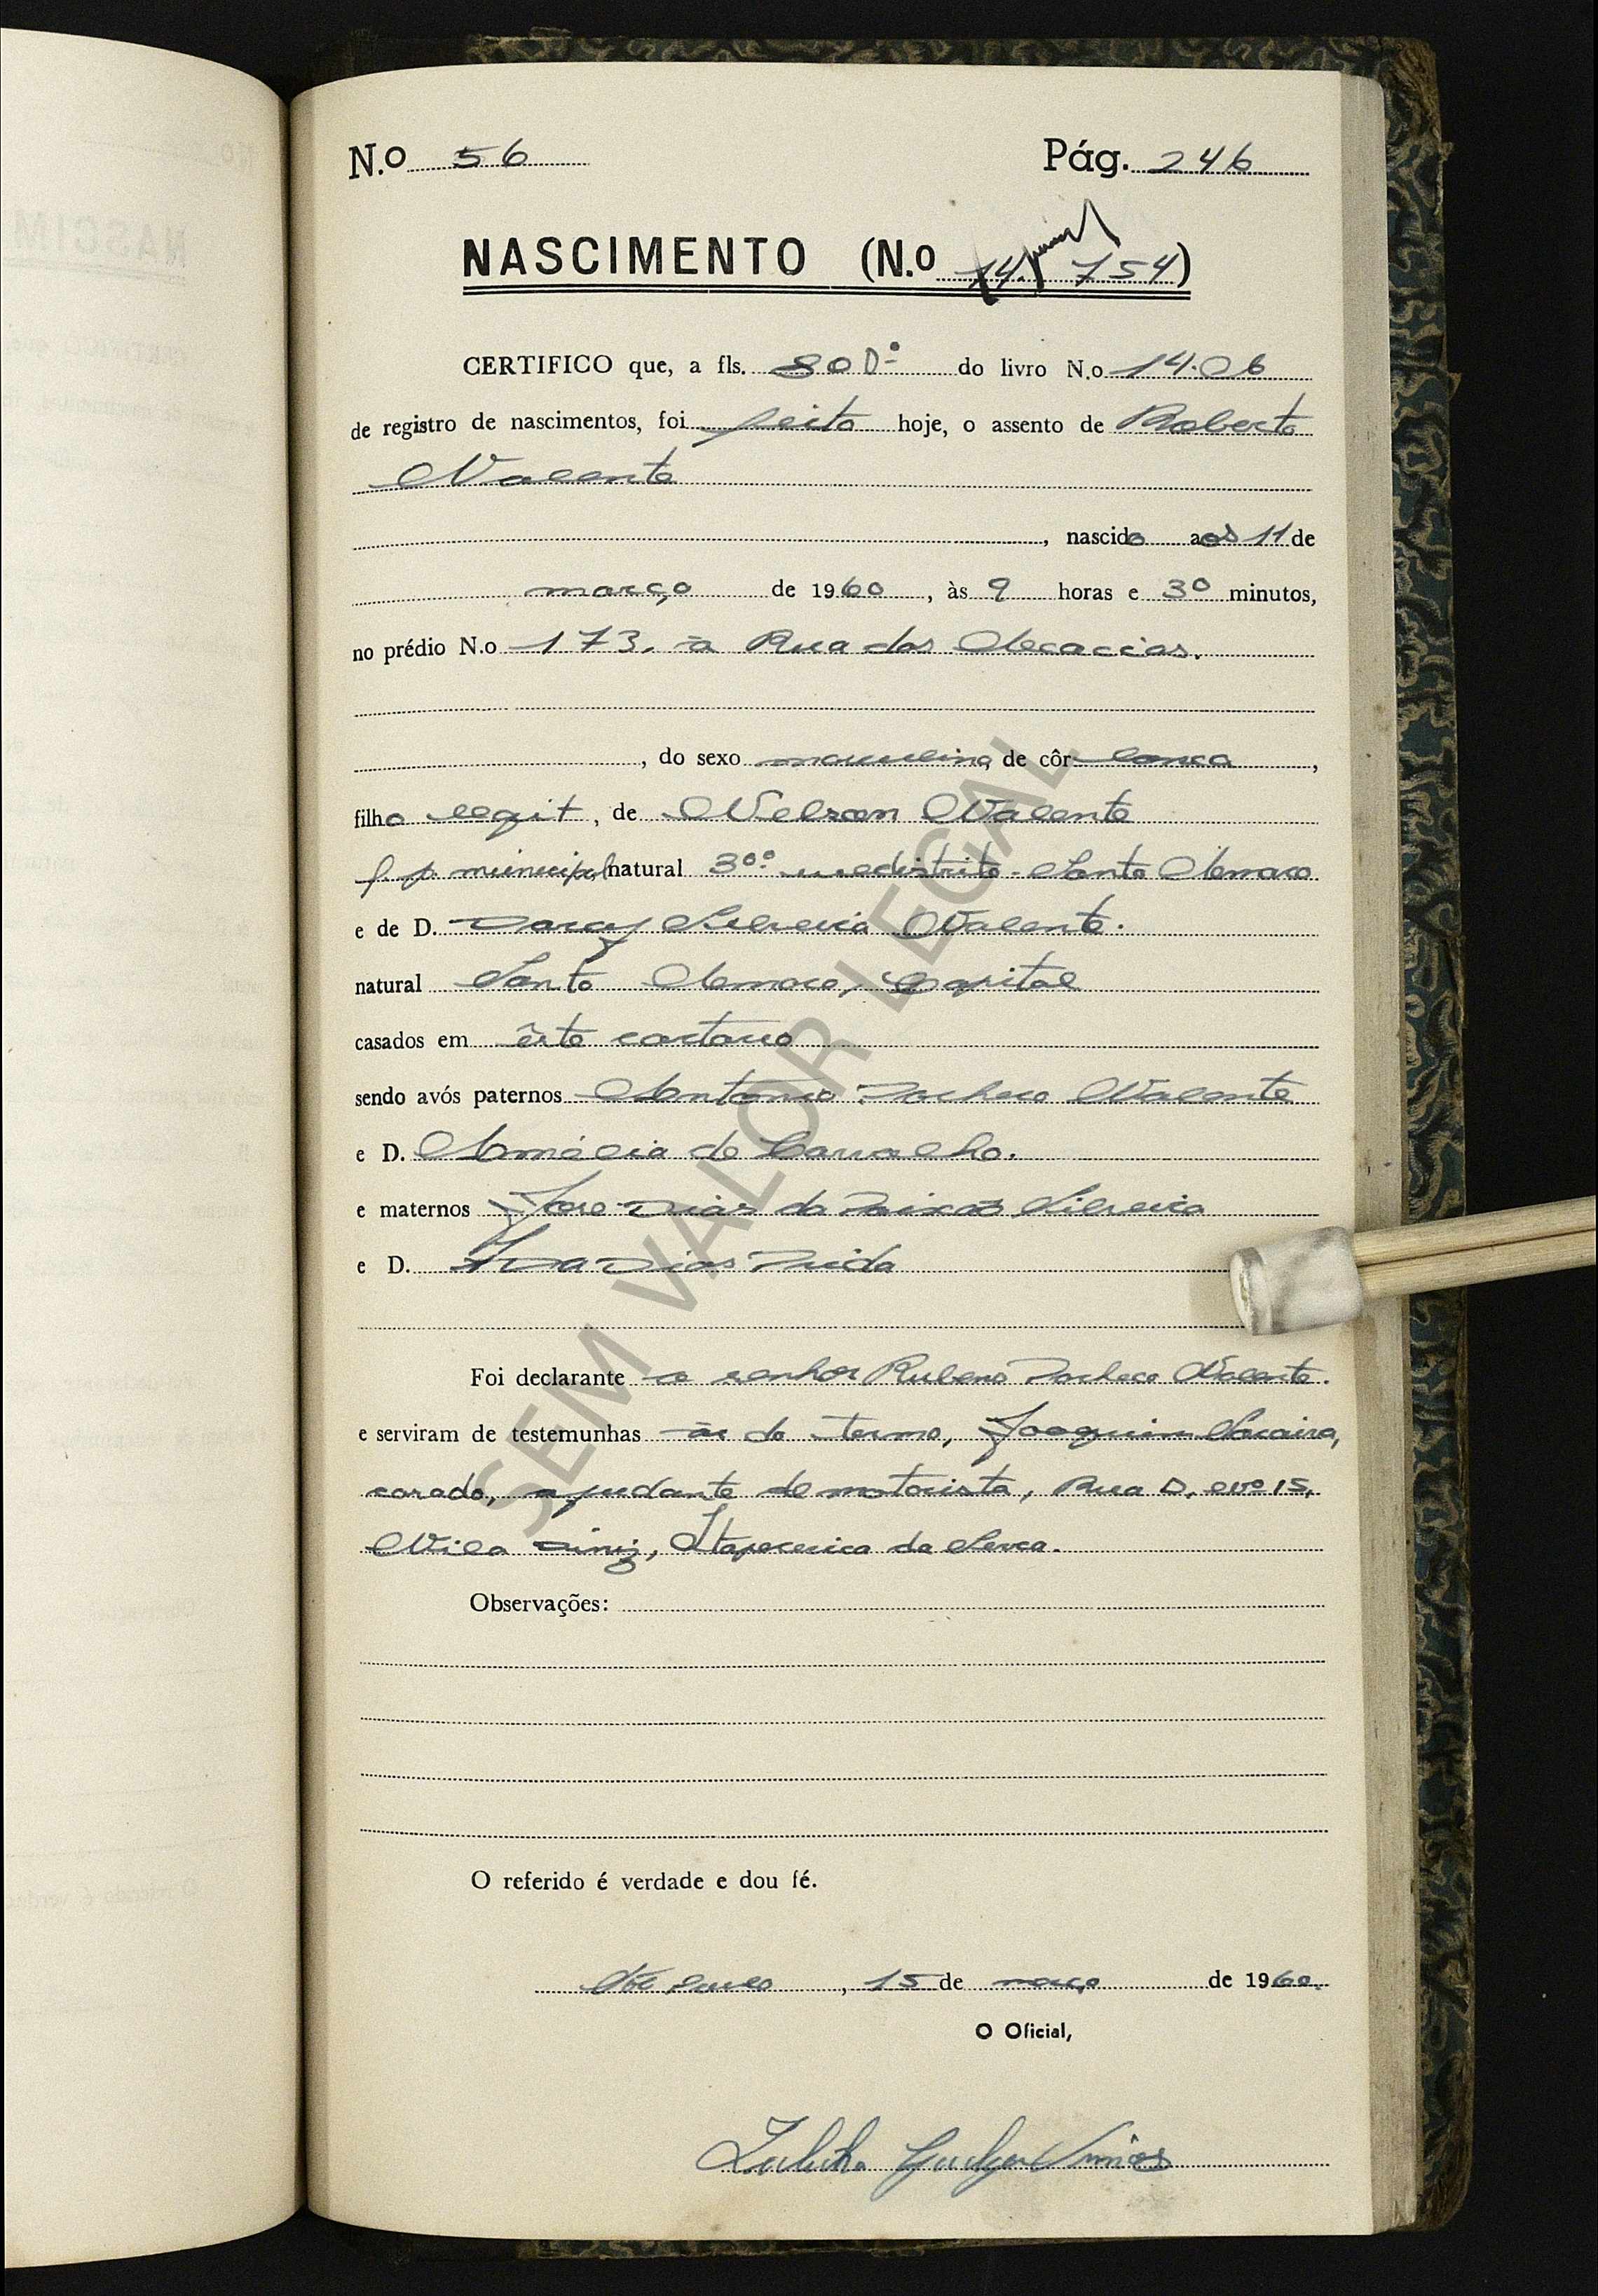 N.o 56 Pág. 246
NASCIMENTO (N.o 14. 754)
CERTIFICO que, a fls. 80 do livro N.o 14.06
de registro de nascimentos, foi feito hoje, o assento de Roberto
Valente
, nascido aos 11 de
março de 1960, às 9 horas e 30 minutos,
no prédio N.o 173, à Rua das Acaccias.
, do sexo masculino, de côr branca,
filho legit, de Nelson Valente
f. p. municipal natural 3º subdistrito - Santo Amaro
e de D. Darcy Silveira Valente.
natural Santo Amaro, Capital
casados em êste cartorio
sendo avós paternos Antonio Pacheco Valente
e D. Amélia de Carvalho.
e maternos José Dias da Paixão Silveira
e D. Dias
Foi declarante o senhor Rubens Pacheco Valente.
e serviram de testemunhas as do termo, Joaquim
casado, ajudante de motorista, Rua D, nº 15,
Vila Diniz, Itapecerica da Serra.
Observações:
O referido é verdade e dou fé.
São Paulo, 15 de março de 1960.
O Oficial,
SEM VALOR LEGAL